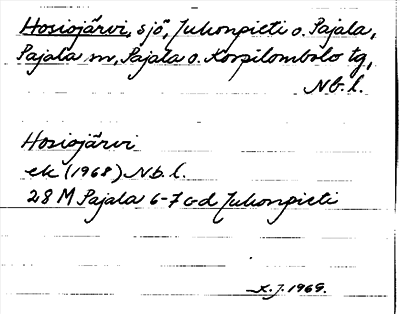 Hosiojärvi, sjö, Juhonpieti o. Pajala,
Pajala sn, Pajala o. Korpilombolo tg,
Nb.l.
Hosiojärvi
ek (1968) Nb.l.
28 M Pajala 6-7 c-d Juhonpieti
X.J. 1969.